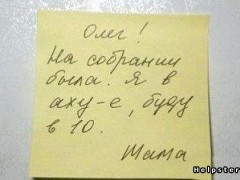 Олег!
На собрании
была. Я в
аху-е, буду
в 10.
Мама
Helpster